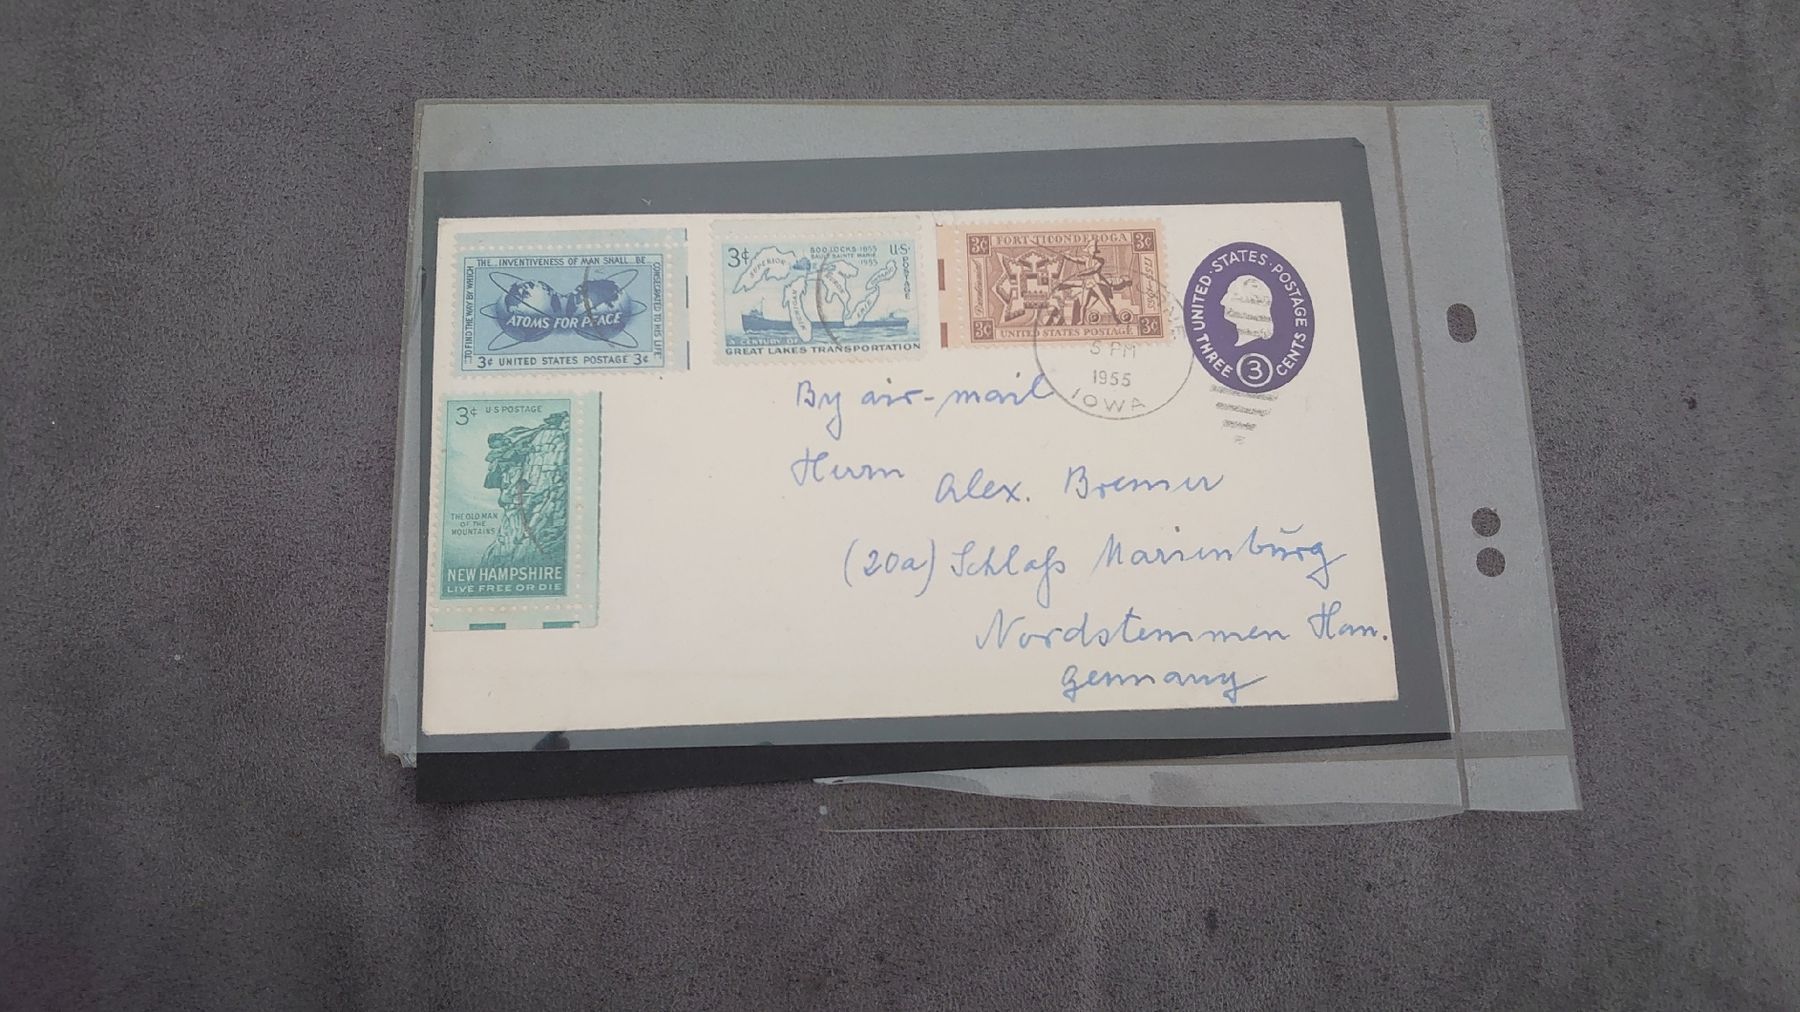 THE INVENTIVENESS OF MAN SHALL BE
CONSECRATED TO HIS LIFE
TO FIND THE WAY BY WHICH
ATOMS FOR PEACE
3¢ UNITED STATES POSTAGE 3¢
3¢
SOO LOCKS·1855
SAULT SAINTE MARIE
1955
U·S·
POSTAGE
SUPERIOR
MICHIGAN
HURON
ERIE
ONTARIO
A CENTURY OF
GREAT LAKES TRANSPORTATION
3¢ FORT TICONDEROGA 3¢
1755-1955
3¢ UNITED STATES POSTAGE 3¢
UNITED·STATES·POSTAGE
THREE 3 CENTS
5 PM
1955
IOWA
3¢ U S POSTAGE
THE OLD MAN
OF THE
MOUNTAINS
NEW HAMPSHIRE
LIVE FREE OR DIE
By air-mail
Herrn Alex. Bremer
(20a) Schloß Marienburg
Nordstemmen Han.
Germany